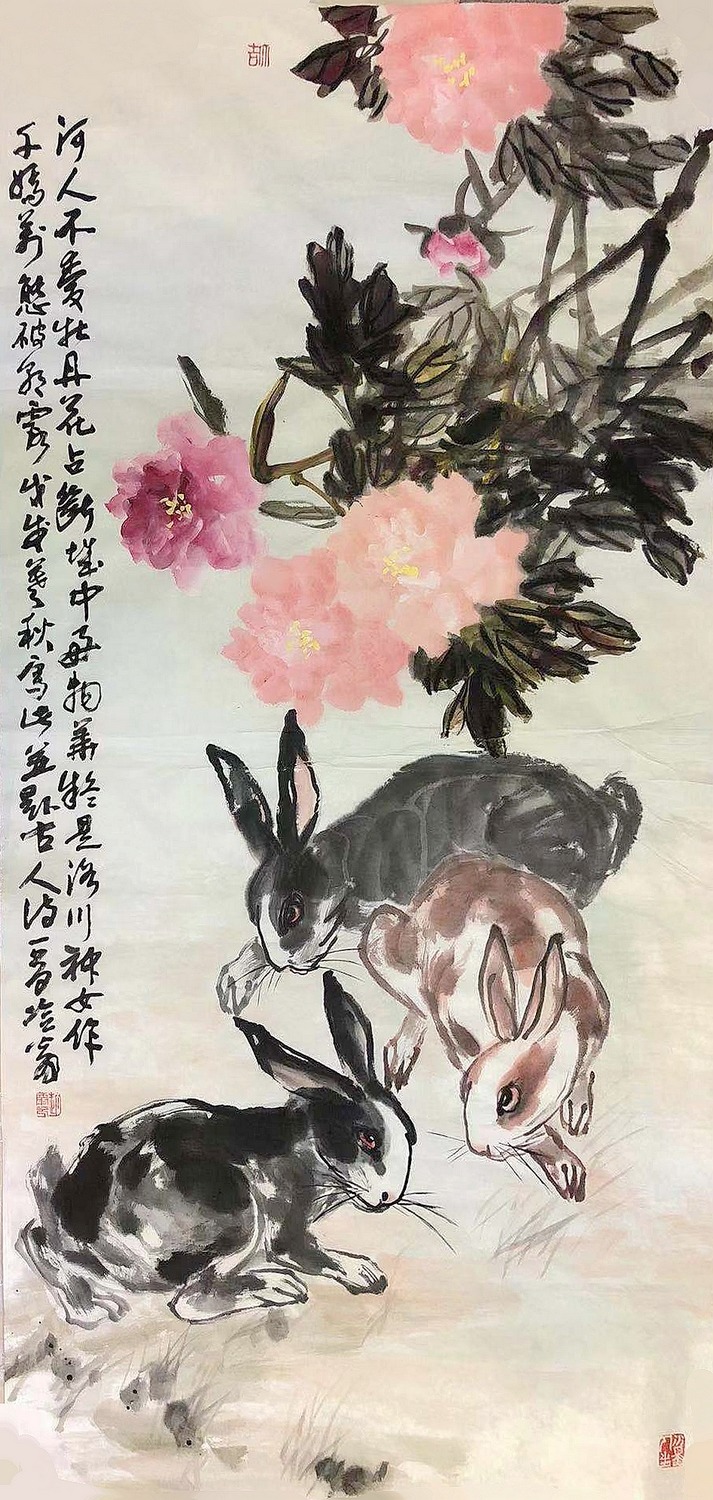 何人不爱牡丹花占断城中好物华疑是洛川神女作
千娇万态破朝霞戊戌暮秋写此并题古人诗一首